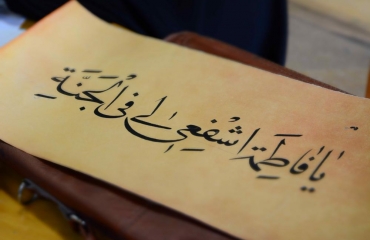 یا فاطِمَة اشْفَعِی لی فی الْجَنَّةِ